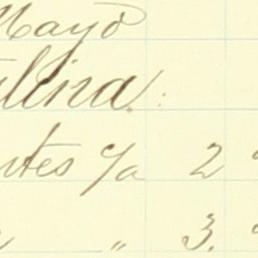 Mayo
lina.
ntes c/a 2
" 3.